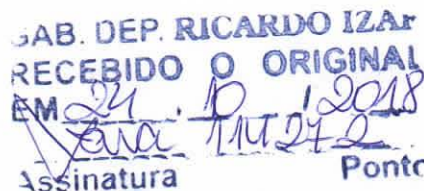 GAB. DEP. RICARDO IZAr
RECEBIDO O ORIGINAL
EM 24 . 10 / 2018
114272
Assinatura Ponto